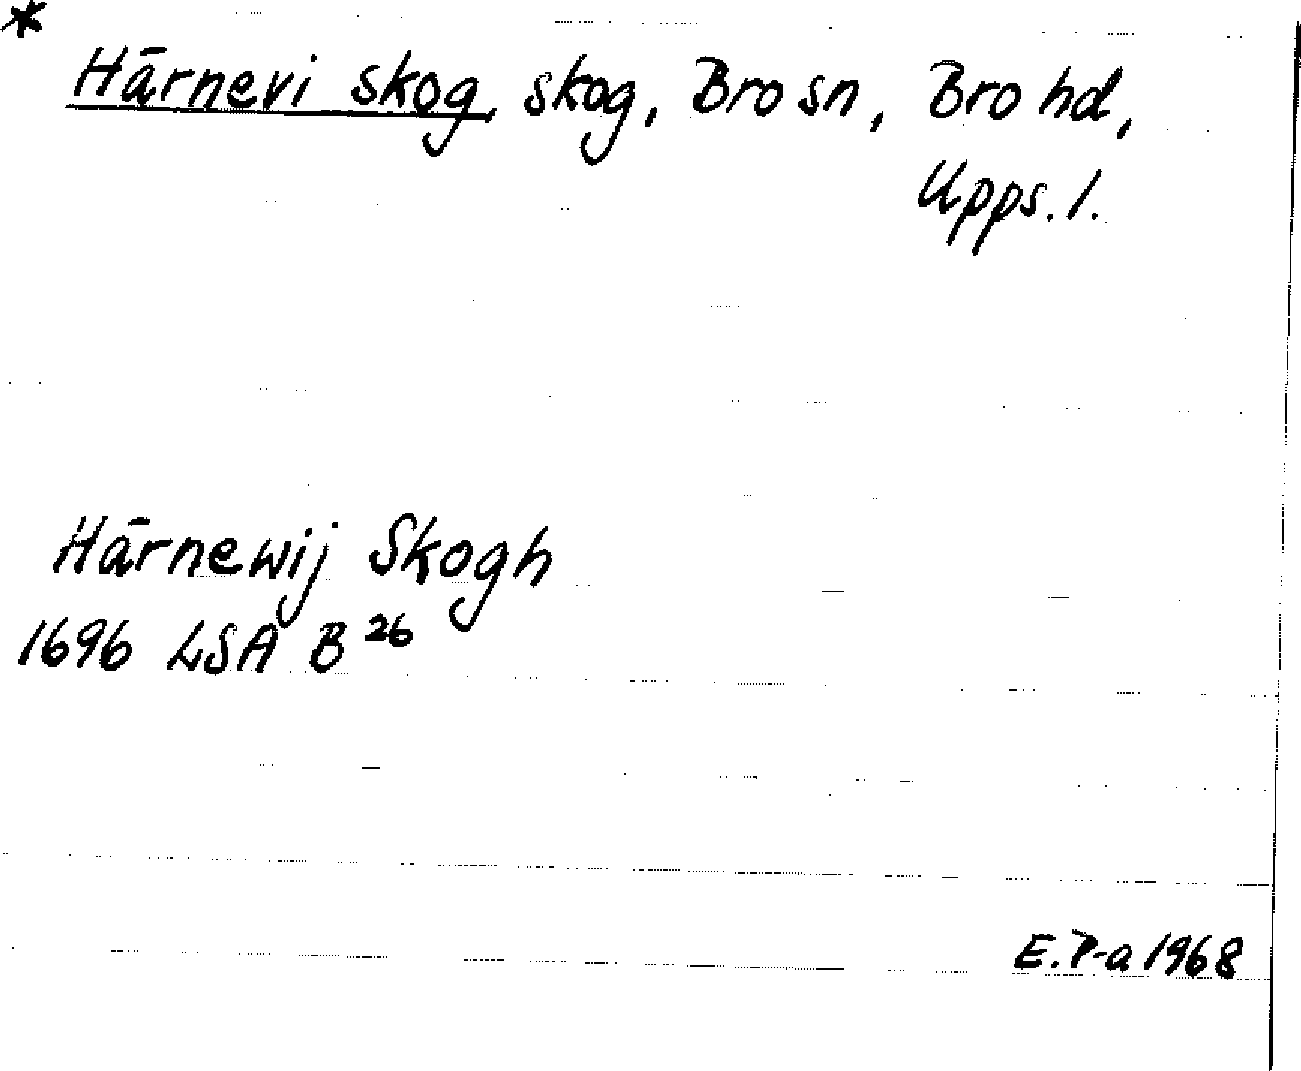 *
Härnevi skog, skog, Bro sn, Bro hd,
Upps. l.
Härnewij Skogh
1696 LSA B 26
E. P-a 1968